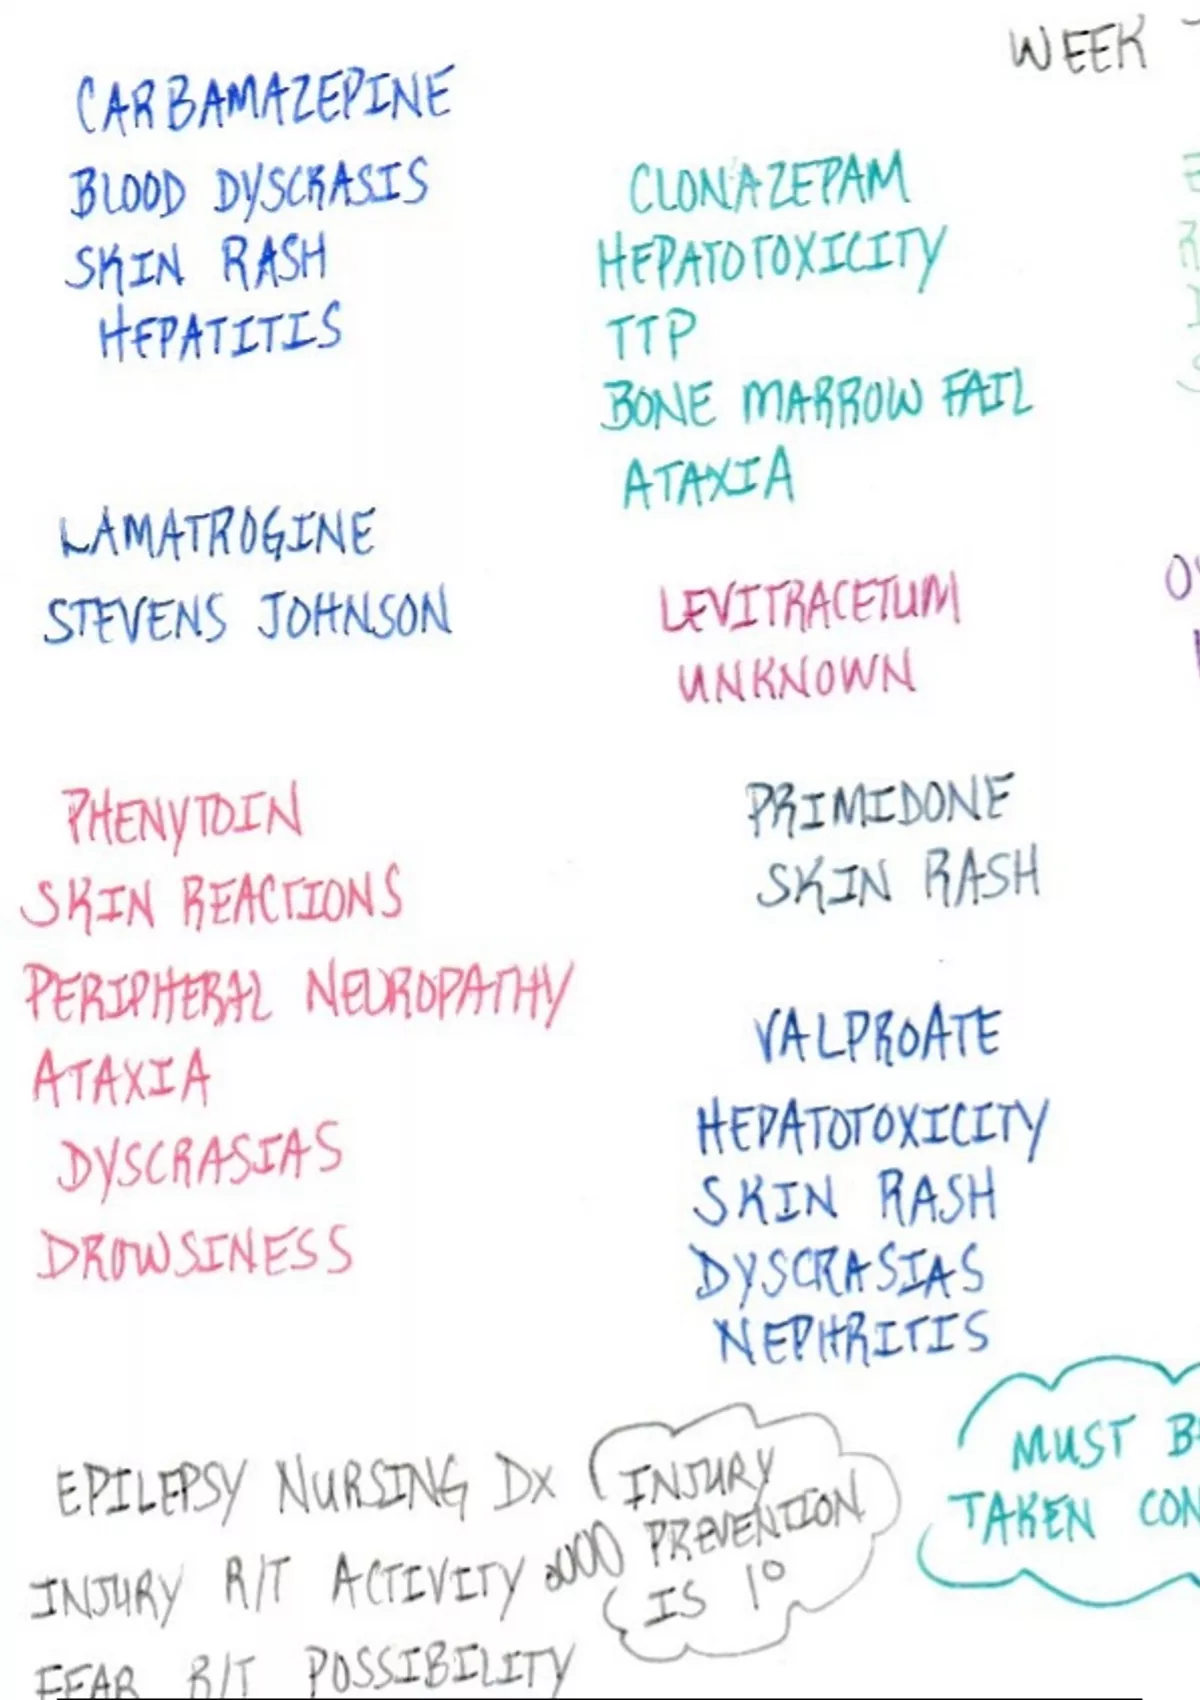 WEEK
CARBAMAZEPINE
BLOOD DYSCRASIS
SKIN RASH
HEPATITIS
LAMATROGINE
STEVENS JOHNSON
PHENYTOIN
SKIN REACTIONS
PERIPHERAL NEUROPATHY
ATAXIA
DYSCRASIAS
DROWSINESS
CLONAZEPAM
HEPATOTOXICITY
TTP
BONE MARROW FAIL
ATAXIA
LEVITRACETUM
UNKNOWN
PRIMIDONE
SKIN RASH
VALPROATE
HEPATOTOXICITY
SKIN RASH
DYSCRASIAS
NEPHRITIS
EPILEPSY NURSING DX
INJURY R/T ACTIVITY
FEAR R/T POSSIBILITY
INJURY
PREVENTION
IS 1°
MUST
TAKEN